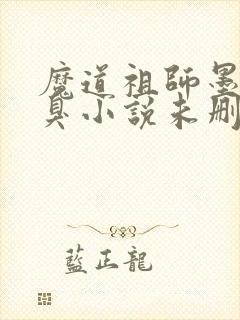 魔道祖師墨
臭小説未刪
藍正龍